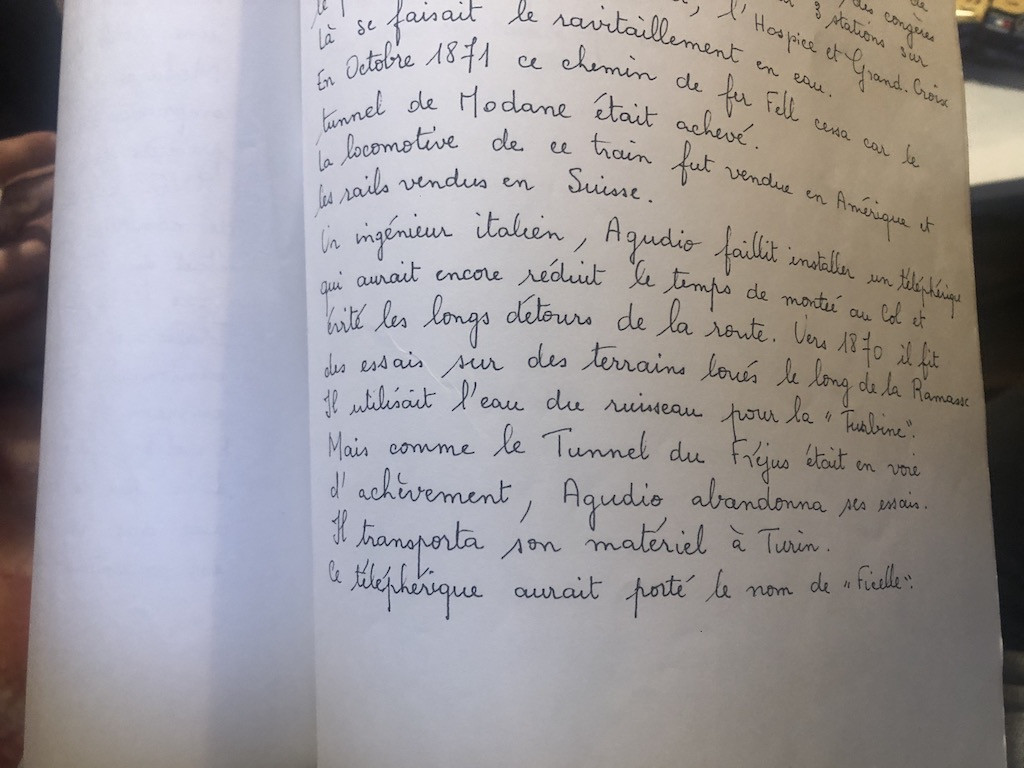 des congères
3 stations sur
, l'Hospice et Grand-Croix
là se faisait le ravitaillement en eau.
En Octobre 1871 ce chemin de fer Fell cessa car le
tunnel de Modane était achevé.
La locomotive de ce train fut vendue en Amérique et
les rails vendus en Suisse.
Un ingénieur italien, Agudio faillit installer un téléphérique
qui aurait encore réduit le temps de monteé au Col et
évité les longs détours de la route. Vers 1870 il fit
des essais sur des terrains loués le long de la Ramasse
Il utilisait l'eau du ruisseau pour la "Turbine".
Mais comme le Tunnel du Fréjus était en voie
d'achèvement, Agudio abandonna ses essais.
Il transporta son matériel à Turin.
Ce téléphérique aurait porté le nom de "Ficelle".